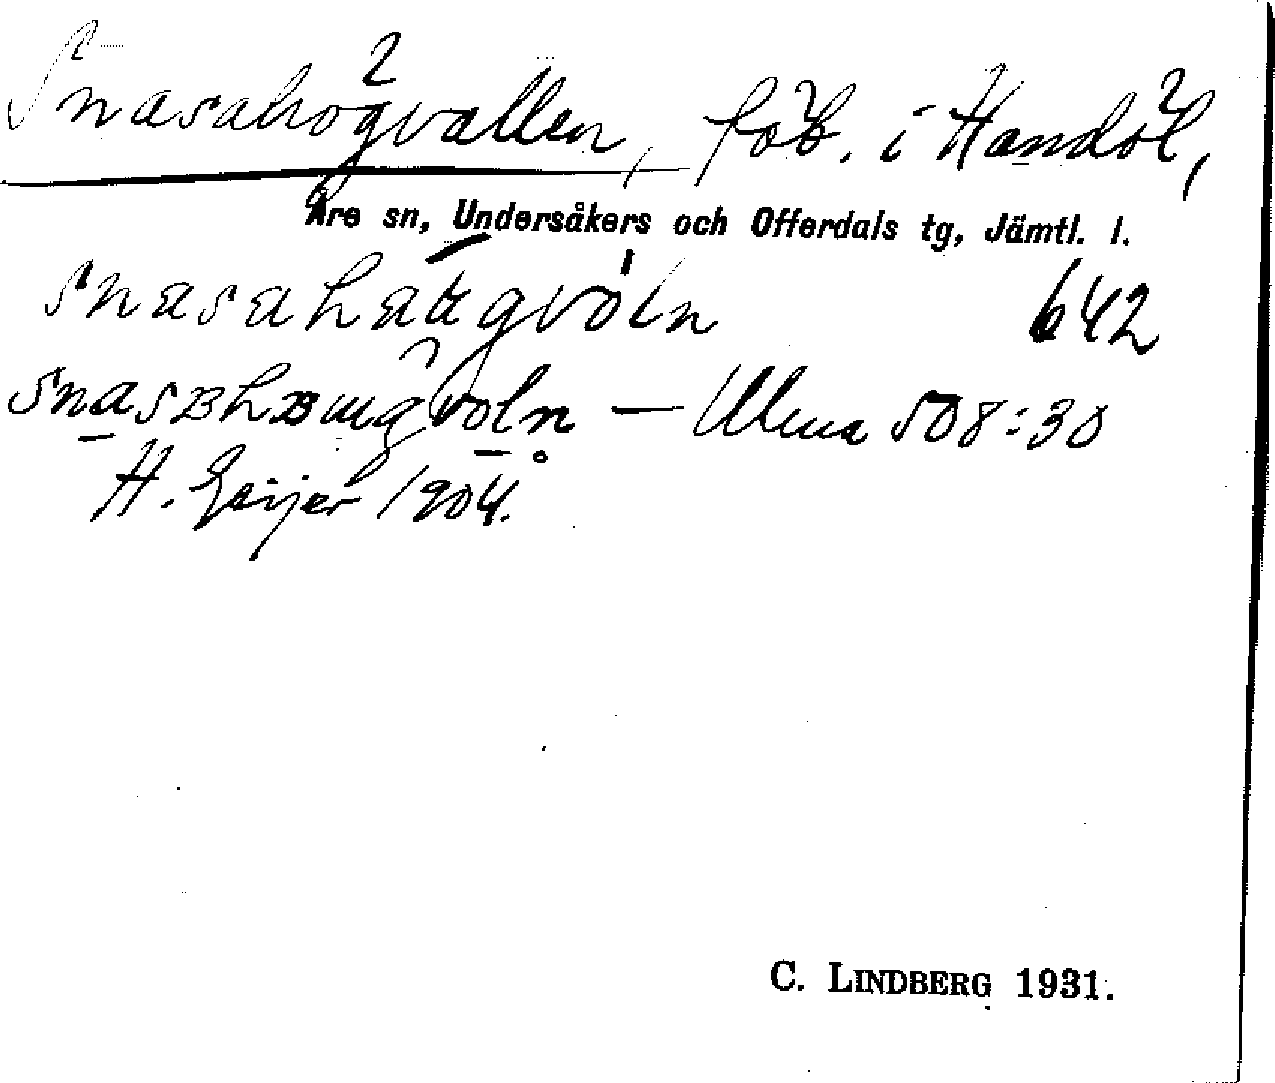 Snasahögvallen, fäb. i Handöl,
Åre sn, Undersåkers och Offerdals tg, Jämtl. l.
snasahaugvoln 642
— Ulma 508:30
H. Geijer 1904.
C. LINDBERG 1931.